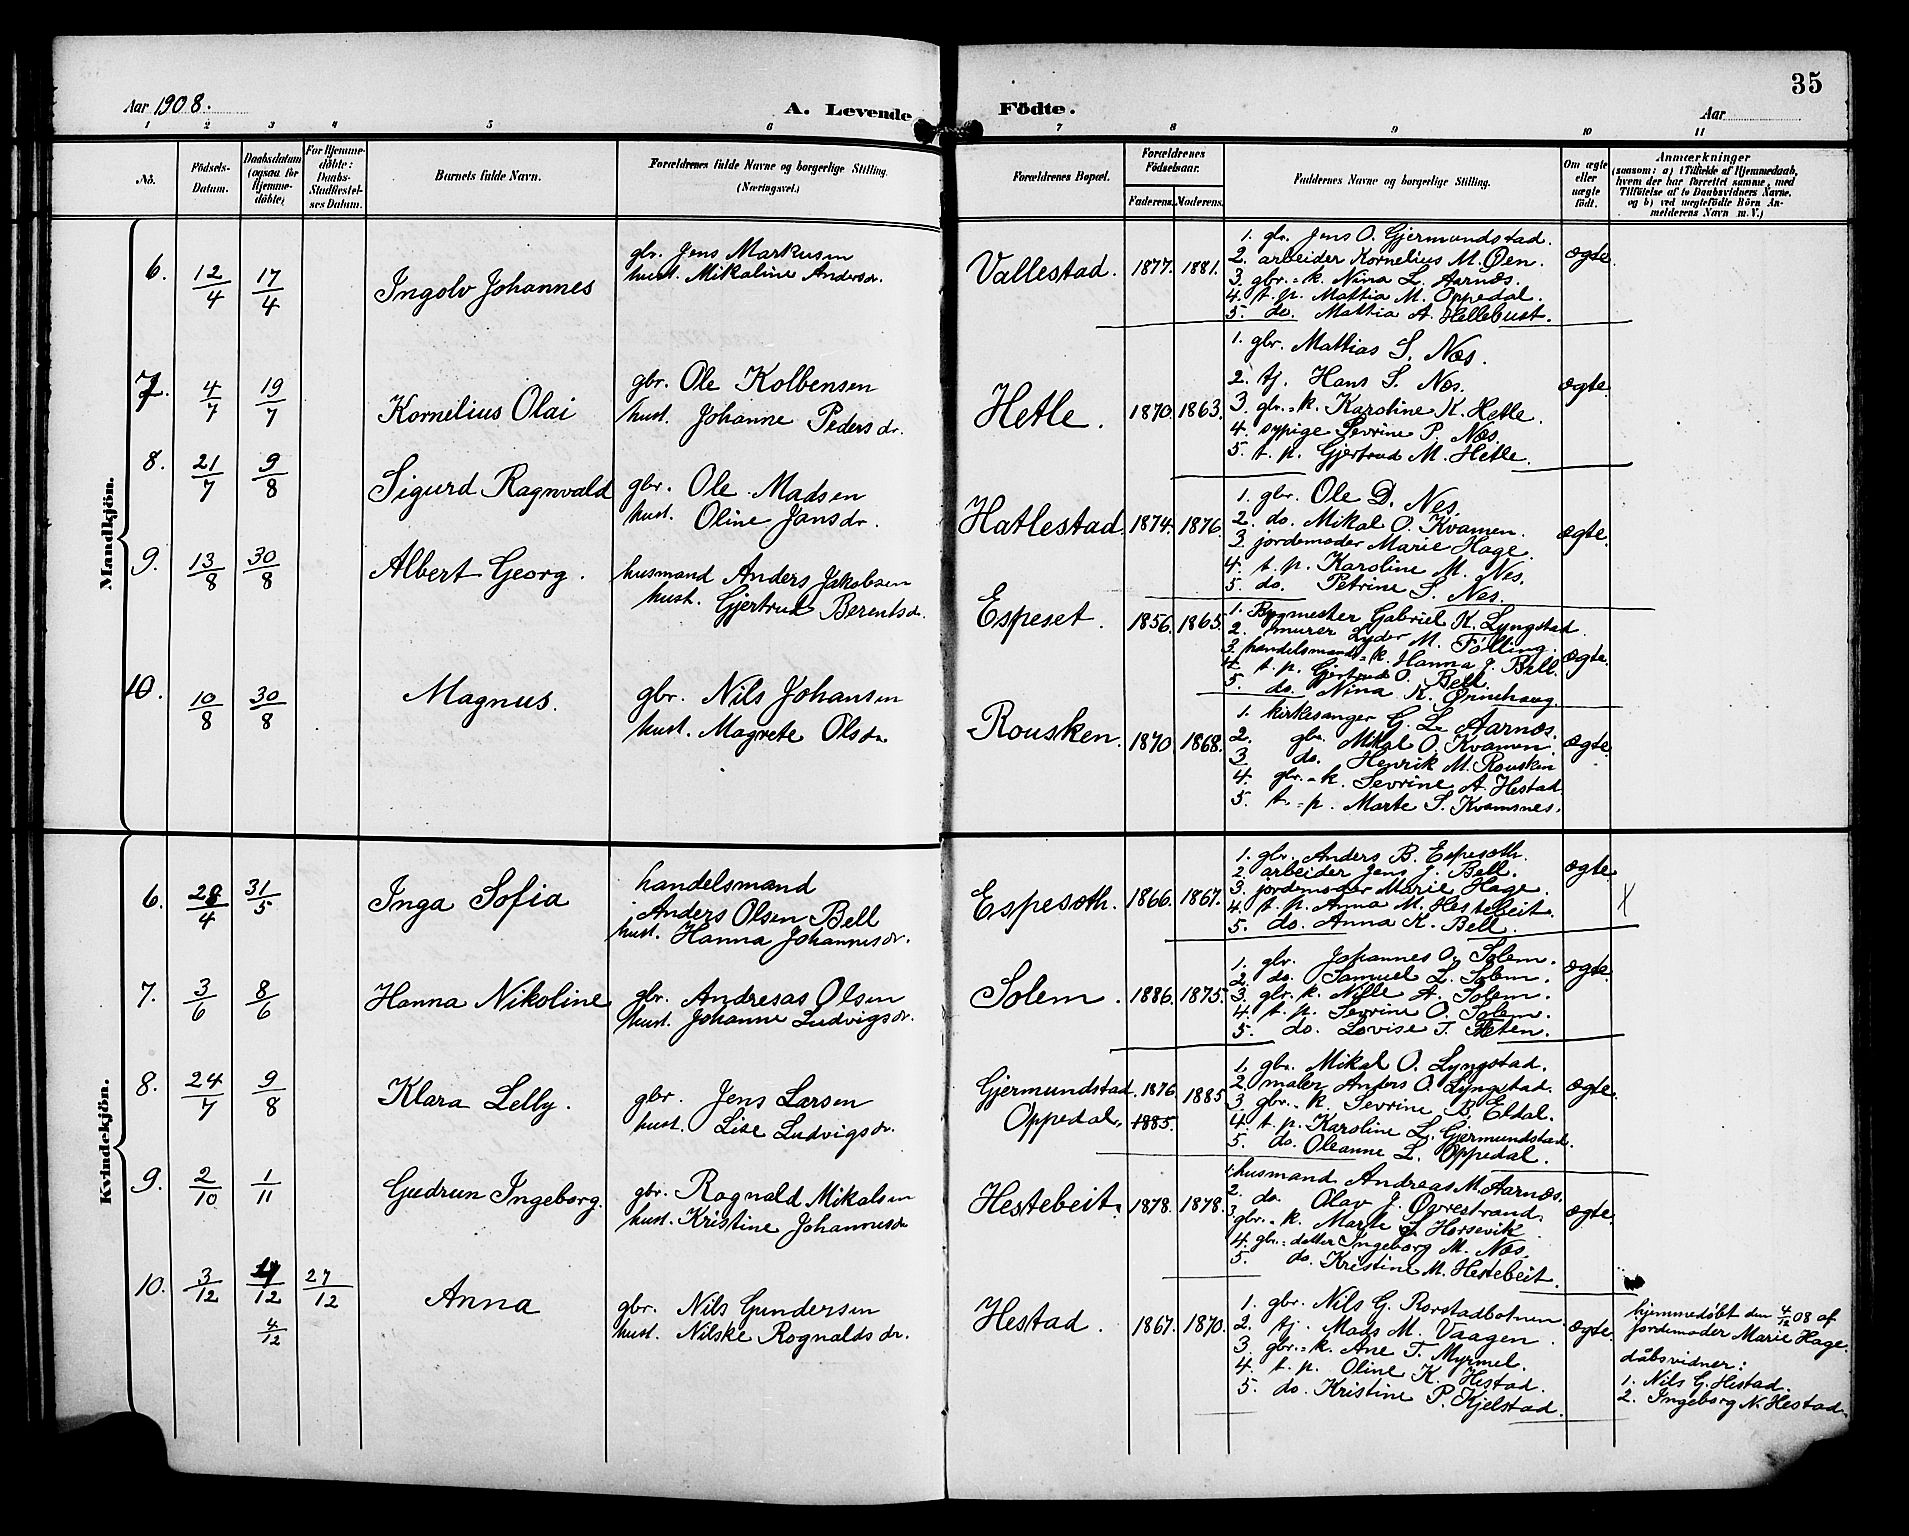 35
Aar 1908.
A. Levende Födte.
Aar
1 2 3 4 5 6 7 8 9 10 11
No.
Födsels-Datum.
Daabsdatum (ogsaa for Hjemmedöbte)
For Hjemmedöbte: Daabs-Stadfæstelses Datum.
Barnets fulde Navn.
Forældrenes fulde Navne og borgerlige Stilling. (Næringsvei.)
Forældrenes Bopæl.
Forældrenes Födselsaar.
Faderens. Moderens.
Faddernes Navne og borgerlige Stilling.
Om ægte eller uægte födt.
Anmærkninger
(saasom: a) i Tilfælde af Hjemmedaab, hvem der har forrettet samme, med Tilföielse af to Daabsvidners Navne, og b) ved uægtefödte Börn Anmelderens Navn m. V.)
Mandkjön.
6. 12/4 17/4 Ingolv Johannes
gbr. Jens Markusen
hust. Mikaline Andersdr.
Vallestad. 1877. 1881.
1. gbr. Jens O. Gjermundstad.
2. arbeider Kornelius M. Øen.
3. gbr.=k. Nina L. Aarnæs.
4. t. p. Mattia M. Oppedal.
5. do. Mattia A. Hellebust.
ægte.
7. 4/7 19/7 Kornelius Olai
gbr. Ole Kolbensen
hust. Johanne Pedersdr.
Hetle. 1870. 1863.
1. gbr. Mattias S. Næs.
2. tj. Hans S. Næs.
3. gbr.=k. Karoline K. Hetle.
4. sypige Sevrine P. Næs.
5. t. p. Gjertrud M. Hetle.
ægte.
8. 21/7 9/8 Sigurd Ragnvald
gbr. Ole Madsen
hust. Oline Jansdr.
Hatlestad. 1874. 1876.
1. gbr. Ole D. Nes.
2. do. Mikal O. Kvamen.
3. jordemoder Marie Hage.
4. t. p. Karoline M. Nes.
5. do. Petrine S. Nes.
ægte.
9. 13/8 30/8 Albert Georg.
husmand Anders Jakobsen
hust. Gjertrud Berentsdr.
Espeset. 1856. 1865.
1. Bygmester Gabriel K. Lyngstad.
2. murer Lyder M. Fölling.
3. handelsmands=k. Hanna J. Bell.
4. t. p. Gjertrud O. Bell.
5. do. Nina K. Grinehaug.
ægte.
10. 10/8 30/8 Magnus.
gbr. Nils Johansen
hust. Magrete Olsdr.
Rousken. 1870 1868.
1. kirkesanger G. L. Aarnæs.
2. gbr. Mikal O. Kvamen.
3 do. Henrik M. Rousken
4. gbr.=k. Sevrine A. Hestad
5. t.=p. Marte S. Kvamsnes.
ægte.
Kvindekjön.
6. 28/4 31/5 Inga Sofia
handelsmand
Anders Olsen Bell
hust. Hanna Johannesdr.
Espesoth. 1866. 1867.
1. gbr. Anders B. Espesoth.
2. arbeider Jens J. Bell.
3. jordemoder Marie Hage.
4. t. p. Anna M. Hestebeit.
5. do. Anna K. Bell.
ægte.
X
7. 3/6 8/6 Hanna Nikoline
gbr. Andreas Olsen
hust. Johanne Ludvigsdr.
Solem. 1886. 1875.
1. gbr. Johannes O. Solem.
2. do. Samuel L. Solem.
3. gbr. k. Nille A. Solem.
4. t. p. Sevrine O. Solem.
5. do. Lovise T. Teten.
ægte.
8. 24/7 9/8 Klara Lelly.
gbr. Jens Larsen
hust. Lise Ludvigsdr.
Gjermundstad. 1876 1885
Oppedal. 1885.
1. gbr. Mikal O. Lyngstad.
2. maler Anders O. Lyngstad.
3. gbr.=k. Sevrine B. Eldal.
4. t. p. Karoline L. Gjermundstad.
5. do. Oleanne L. Oppedal.
ægte.
9. 2/10 1/11 Gudrun Ingeborg.
gbr. Rognald Mikalsen
hust. Kristine Johannesdr
Hestebeit. 1878. 1878.
1. husmand Andreas M. Aarnæs.
2. do. Olav J. Øvrestrand.
3. gbr.=k. Marte S. Horsevik.
4. gbr.=datter Ingeborg M. Næs.
5. do. Kristine M. Hestebeit.
ægte.
10. 3/12 /12 27/12 Anna
4/12
gbr. Nils Gundersen
hust. Nilske Rognaldsdr.
Hestad. 1867. 1870.
1. gbr. Nils G. Rorstadbotnen
2. tj. Mads M. Vaagen.
3. gbr.=k. Ane T. Myrmel.
4. t. p. Oline K. Hestad.
5. do. Kristine P. Kjelstad.
ægte.
hjemmedøbt den 4/12 08 af
jordemoder Marie Hage.
dåbsvidner:
1. Nils G. Hestad.
2. Ingeborg N. Hestad.